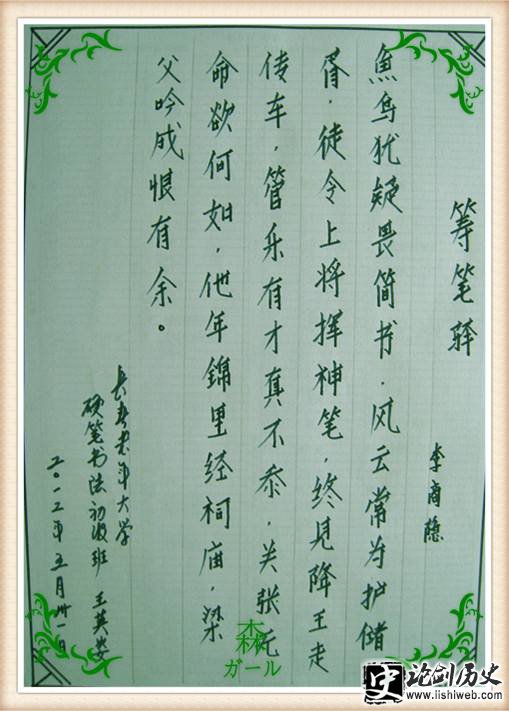 筹笔驿
李商隐
鱼鸟犹疑畏简书．风云常为护储
胥．徒令上将挥神笔．终见降王走
传车．管乐有才真不忝．关张无
命欲何如．他年錦里经祠庙．梁
父吟成恨有余。
长春老年大学
硬笔书法初级班 王英
二〇一二年五月卅一日
森
ガール
史 论剑历史
www.lishiweb.com